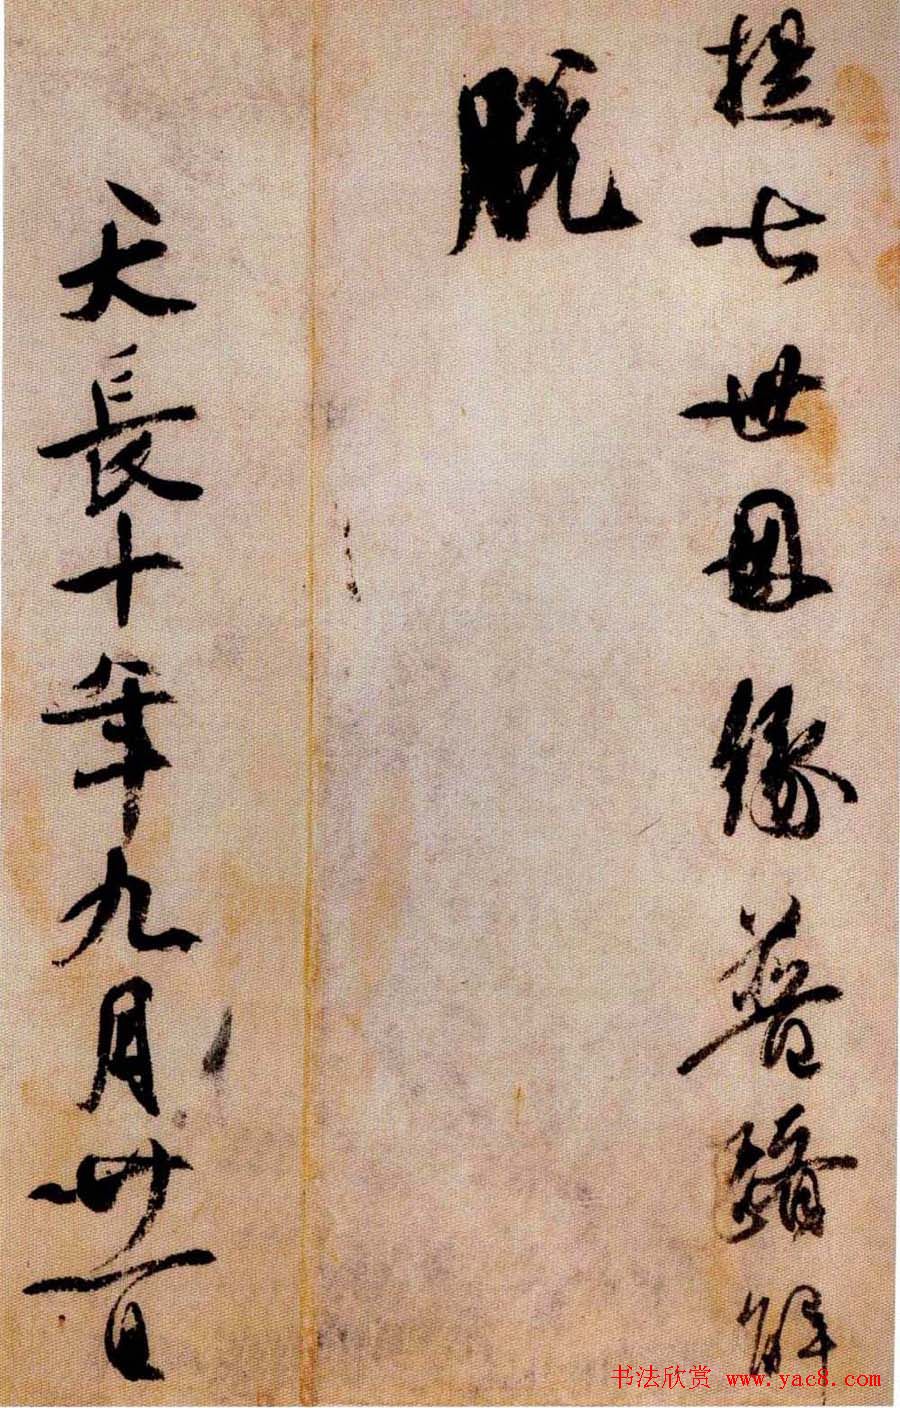 提七世母緣普躋解
脫
天長十年九月廿一日
书法欣赏 www.yac8.com